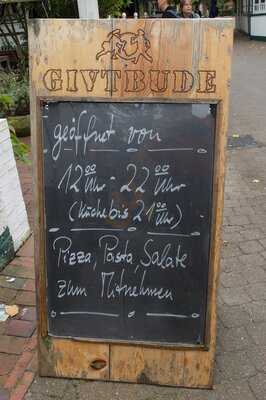 GIVTBUDE
geöffnet von
12⁰⁰ Uhr - 22⁰⁰ Uhr
(Küche bis 21⁰⁰ Uhr)
Pizza, Pasta, Salate
zum Mitnehmen